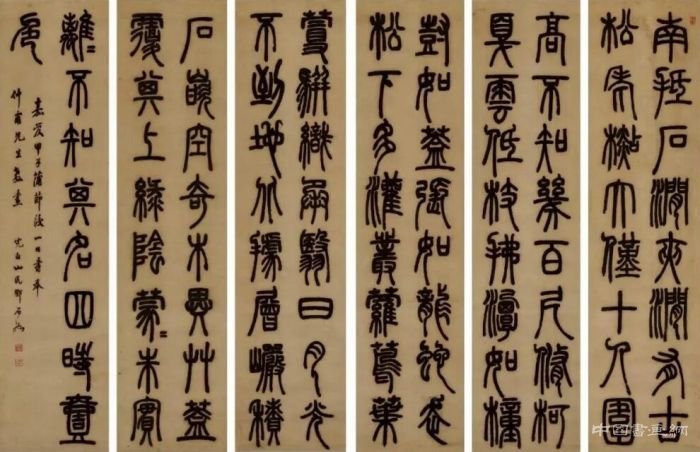 南抵石澗夾澗有古
松老檆大僅十人圍
高不知幾百尺脩柯
戛雲低枝拂潭如橦
尌如蓋張如龍蛇走
松下多灌叢蘿蔦葉
蔓駢織承翳日月光
不到地北據層巖積
石嵌空奇木異艸蓋
覆其上綠陰蒙〻朱實
離〻不知其名四時壹
色
嘉慶甲子蒲節後一日書奉
仲甫先生教畫 完白山民鄧石如
中国書畫網